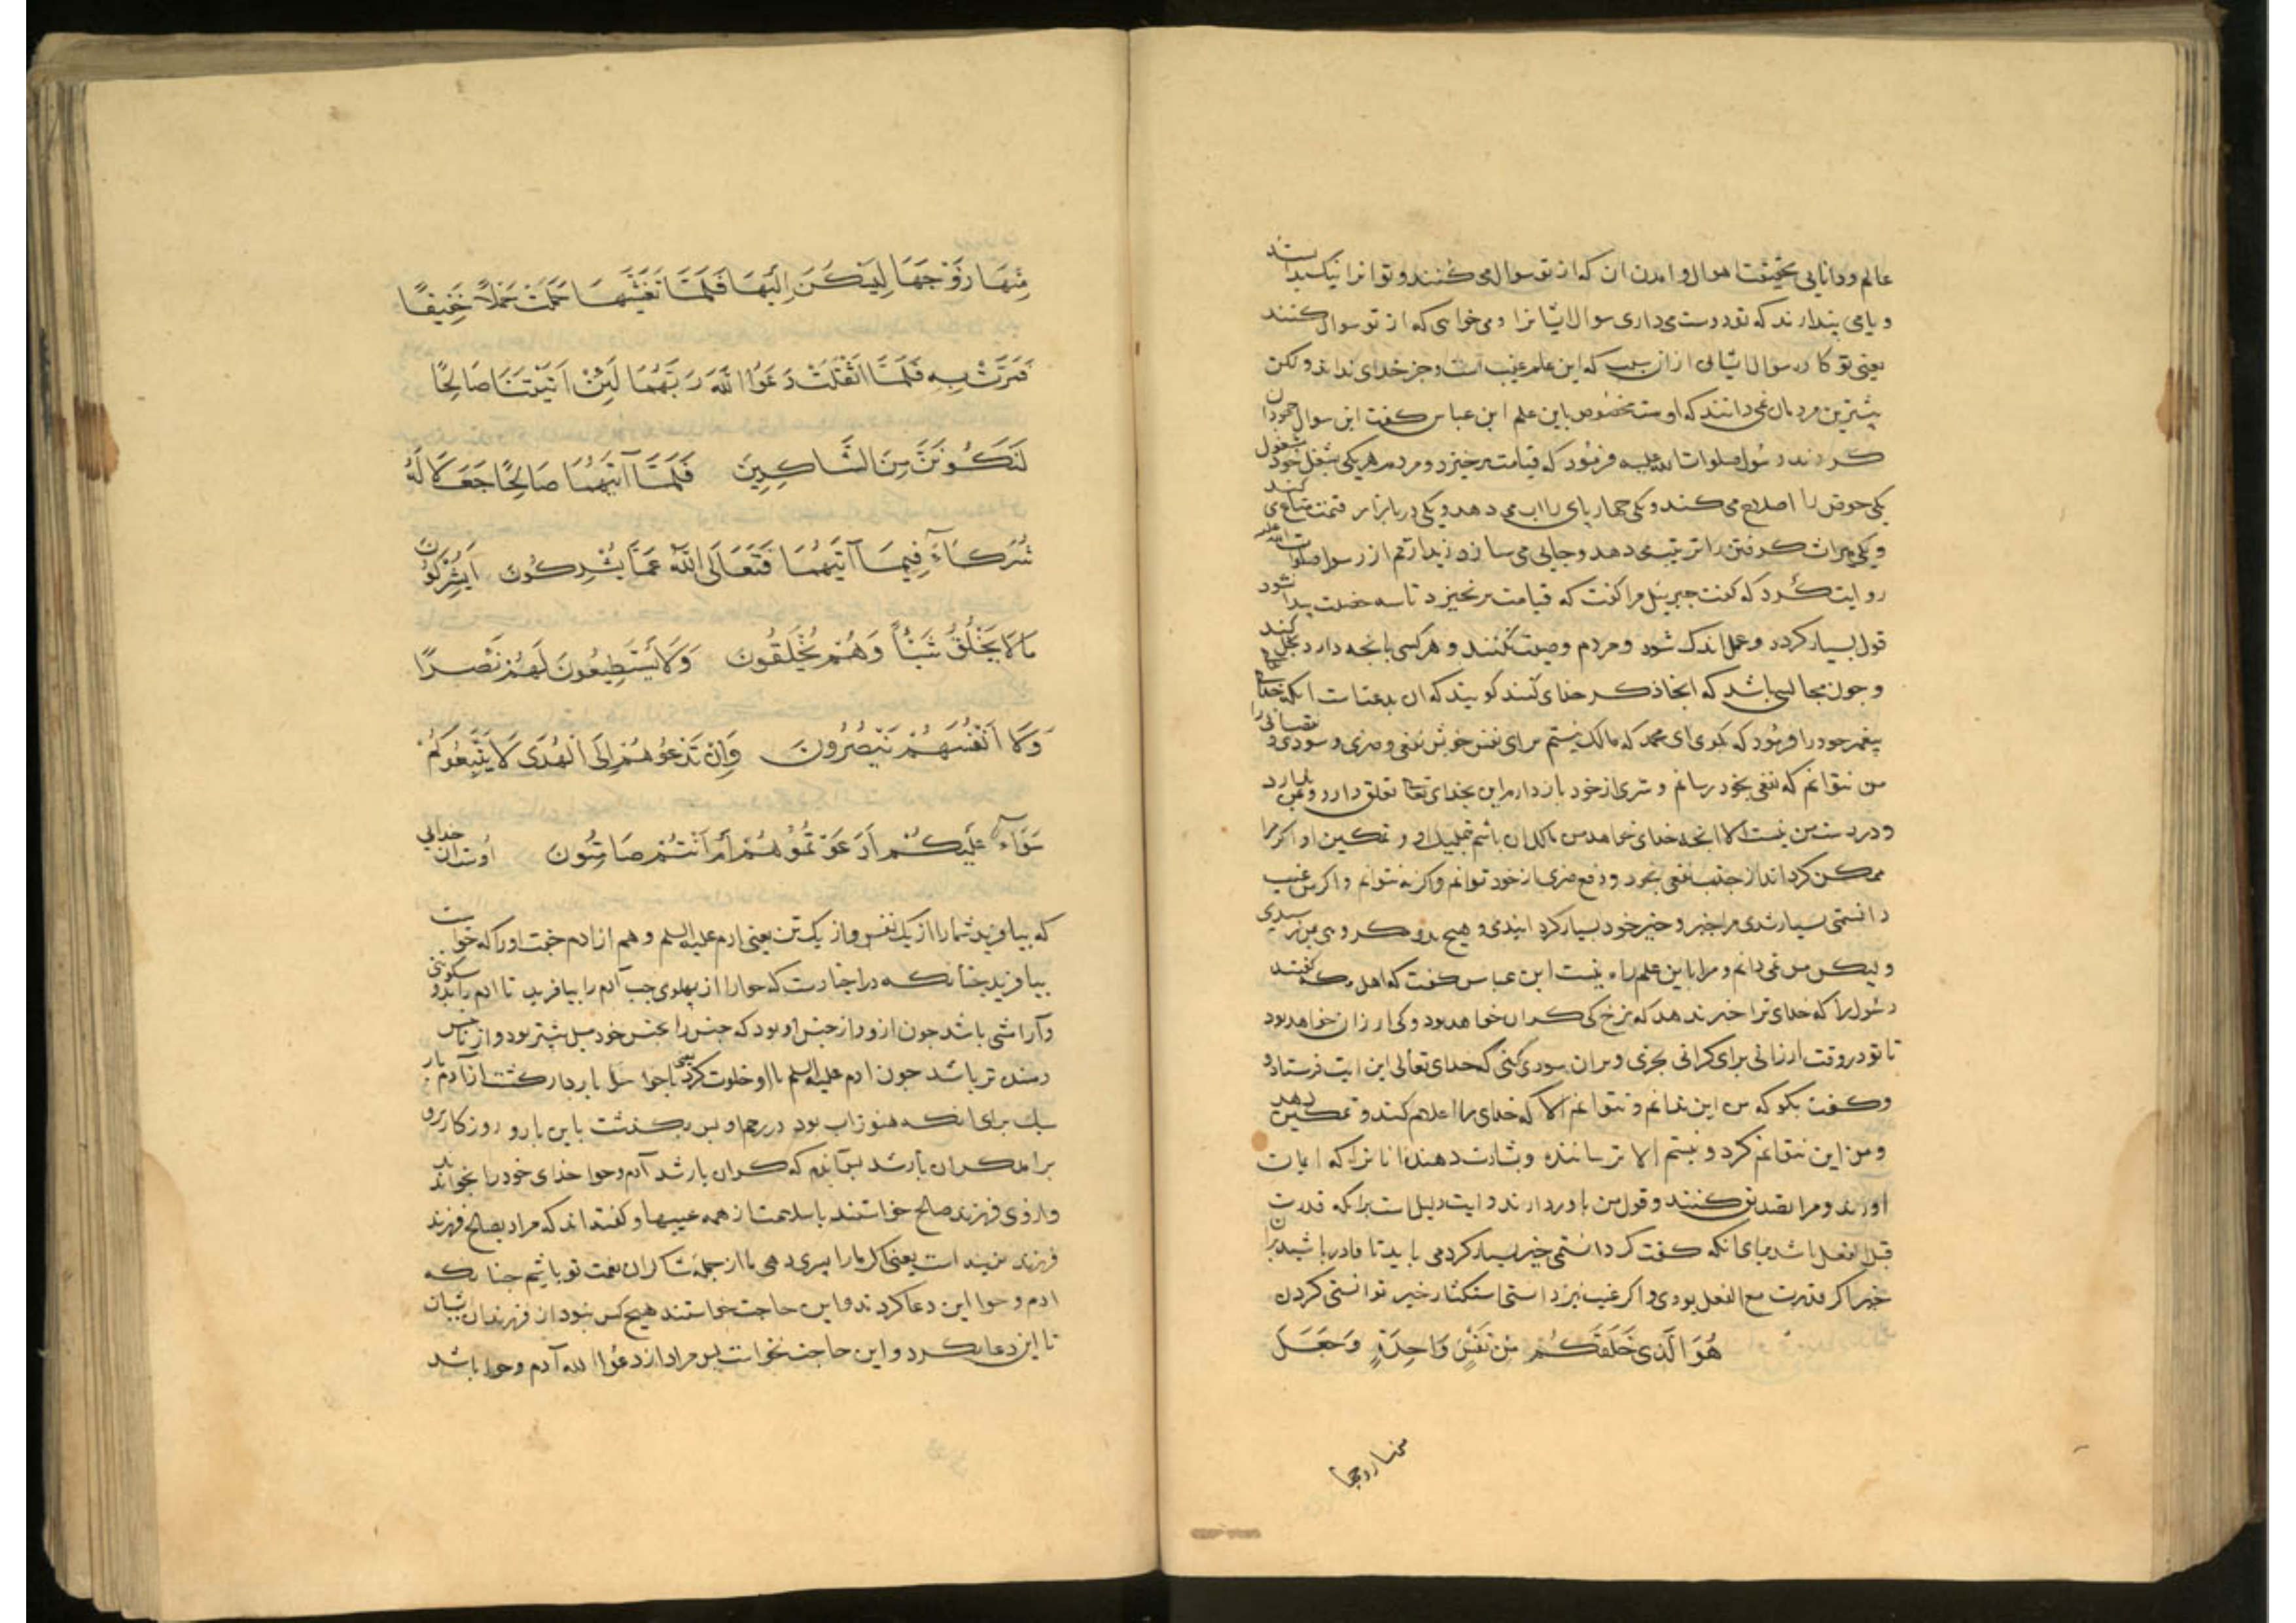 عالم و دانایی بحقیقت احوال و امدن ان که از تو سوال می کنند و تو انرا نیک بدانسته
و یا می پندارند که تو دوست می داری سوال ایشانرا و می خواهی که از تو سوال کنند
یعنی تو کاره سوال ایشانی از ان سبب که این علم غیب است و جز خدای نداند و لکن
بیشترین مردمان نمی دانند که اوست مخصوص باین علم ابن عباس گفت این سوال جهودان
کردند رسول صلوات الله علیه فرمود که قیامت برخیزد و مردم هریکی بشغل خود مشغول
یکی حوض را اصلاح می کند و یکی چهارپای را اب می دهد و یکی در بازار قیمت متاع می کند
و یکی میراث گرفتن را ترتیب می دهد و جایی می سازد زید ارقم از رسول صلوات الله علیه
روایت کرد که گفت جبریل مرا گفت که قیامت برنخیزد تا سه خصلت پیدا شود
قول بسیار گردد و عمل اندک شود و مردم وصیت نکنند و هرکسی بانچه دارد بخل کند
و چون مجالسی باشد که انجا ذکر خدای کنند گویند که ان بدعت است انکه خدای تعالی
پیغمبر خود را فرمود که بگوی ای محمد که مالک نیستم برای نفس خویش نفعی و ضری و سودی و نقصانی را
من نتوانم که نفعی بخود رسانم و شری از خود باز دارم این بخدای تعالی تعلق دارد و بمن ندارد
و در دست من نیست الا انچه خدای خواهد من مالک ان باشم بتملیک او و تمکین او اگر مرا
ممکن گرداند از جذب نفعی بخود و دفع ضری از خود توانم و اگر نه نتوانم و اگر من غیب
دانستمی بسیار شدی مرا خیر و خیر خود بسیار گردانیدمی و هیچ بد و مکروهی بمن نرسیدی
و لیکن من نمی دانم و مرا باین علم راه نیست ابن عباس گفت که اهل مکه گفتند
رسول را که خدای ترا خبر ندهد که نرخ کی گران خواهد بود و کی ارزان خواهد بود
تا تو در وقت ارزانی برای گرانی بخری و بران سودی کنی که خدای تعالی این ایت فرستاد و
و گفت بگو که من این ندانم و نتوانم الا که خدای مرا اعلام کند و تمکین دهد
و من این نتوانم کرد و نیستم الا ترساننده و بشارت دهنده انانرا که ایمان
اورند و مرا تصدیق کنند و قول من باور دارند و ایت دلیل است برانکه قدرت
قبل الفعل باشد برای انکه گفت گر دانستمی خیر بسیار کردمی باید تا قادر باشد بران
خیر اگر قدرت مع الفعل بودی و اگر غیب نیز دانستی استکثار خیر نتوانستی کردن
هُوَ الَّذِی خَلَقَکُمْ مِنْ نَفْسٍ وَاحِدَةٍ وَجَعَلَ
منها زوجها
مِنْهَا زَوْجَهَا لِیَسْکُنَ اِلَیْهَا فَلَمَّا تَغَشَّیهَا حَمَلَتْ حَمْلاً خَفِیفًا
فَمَرَّتْ بِهِ فَلَمَّا اَثْقَلَتْ دَعَوَا اللّٰهَ رَبَّهُمَا لَئِنْ اٰتَیْتَنَا صَالِحًا
لَنَکُونَنَّ مِنَ الشَّاکِرِینَ فَلَمَّا آتَیهُمَا صَالِحًا جَعَلَا لَهُ
شُرَکَاءَ فِیمَا آتَیهُمَا فَتَعَالَی اللّٰهُ عَمَّا یُشْرِکُونَ اَیُشْرِکُونَ
مَا لَا یَخْلُقُ شَیْئًا وَهُمْ یُخْلَقُونَ وَلَا یَسْتَطِیعُونَ لَهُمْ نَصْرًا
وَلَا اَنْفُسَهُمْ یَنْصُرُونَ وَاِنْ تَدْعُوهُمْ اِلَی الْهُدَی لَا یَتَّبِعُوکُمْ
سَوَآءٌ عَلَیْکُمْ اَدَعَوْتُمُوهُمْ اَمْ اَنْتُمْ صَامِتُونَ اوست ان خدایی
که بیافرید شما را از یک نفس و از یک تن یعنی ادم علیه السلم و هم از ادم جفت اورا که حواست
بیافرید چنانکه در اخبارست که حوا را از پهلوی چپ آدم را بیافرید تا ادم را بدو سکونی
و آرامشی باشد چون ازو و از جنس او بود که جنس را بجنس خود میل بیشتر بود و از ناجنس
رمنده تر باشد چون ادم علیه السلم با او خلوت کرد یعنی باحوا حوا باردار گشت از آدم بار
سبک برای انکه هنوز اب بود در رحم او پس بگذشت باین بار و روزگار برو
برامد گران بار شد پس آندم که گران بار شد آدم و حوا خدای خود را بخواندند
و ازوی فرزند صالح خواستند باسلامت از همه عیبها و گفته اند که مراد بصالح فرزند
فرزند نرینه است یعنی اگر ما را پسری دهی ما از جمله شاکران نعمت تو باشیم چنانکه
ادم و حوا این دعا کردند و این حاجت خواستند هیچ کس نبود از فرزندان ایشان
تا این دعا نکرد و این حاجت نخواست پس مراد از دعوا الله آدم و حوا باشد